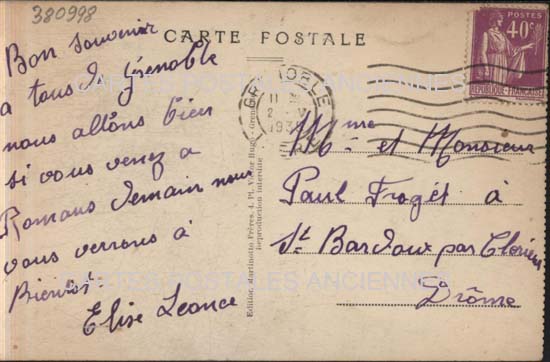 380998
CARTE POSTALE
Bon souvenir
a tous de Grenoble
nous allons bien
si vous venez a
Romans demain nous
vous verrons à
Bientot
Elise Leonce
POSTES
40c
RÉPUBLIQUE FRANÇAISE
GRENOBLE
Mme et Monsieur
Paul Froget à
St Bardoux par Clérieux
Drôme
Edition Martinotto Frères, 4, Pl. Victor Hugo - Grenoble
Reproduction interdite
CARTES POSTALES ANCIENNES
CARTES POSTALES ANCIENNES